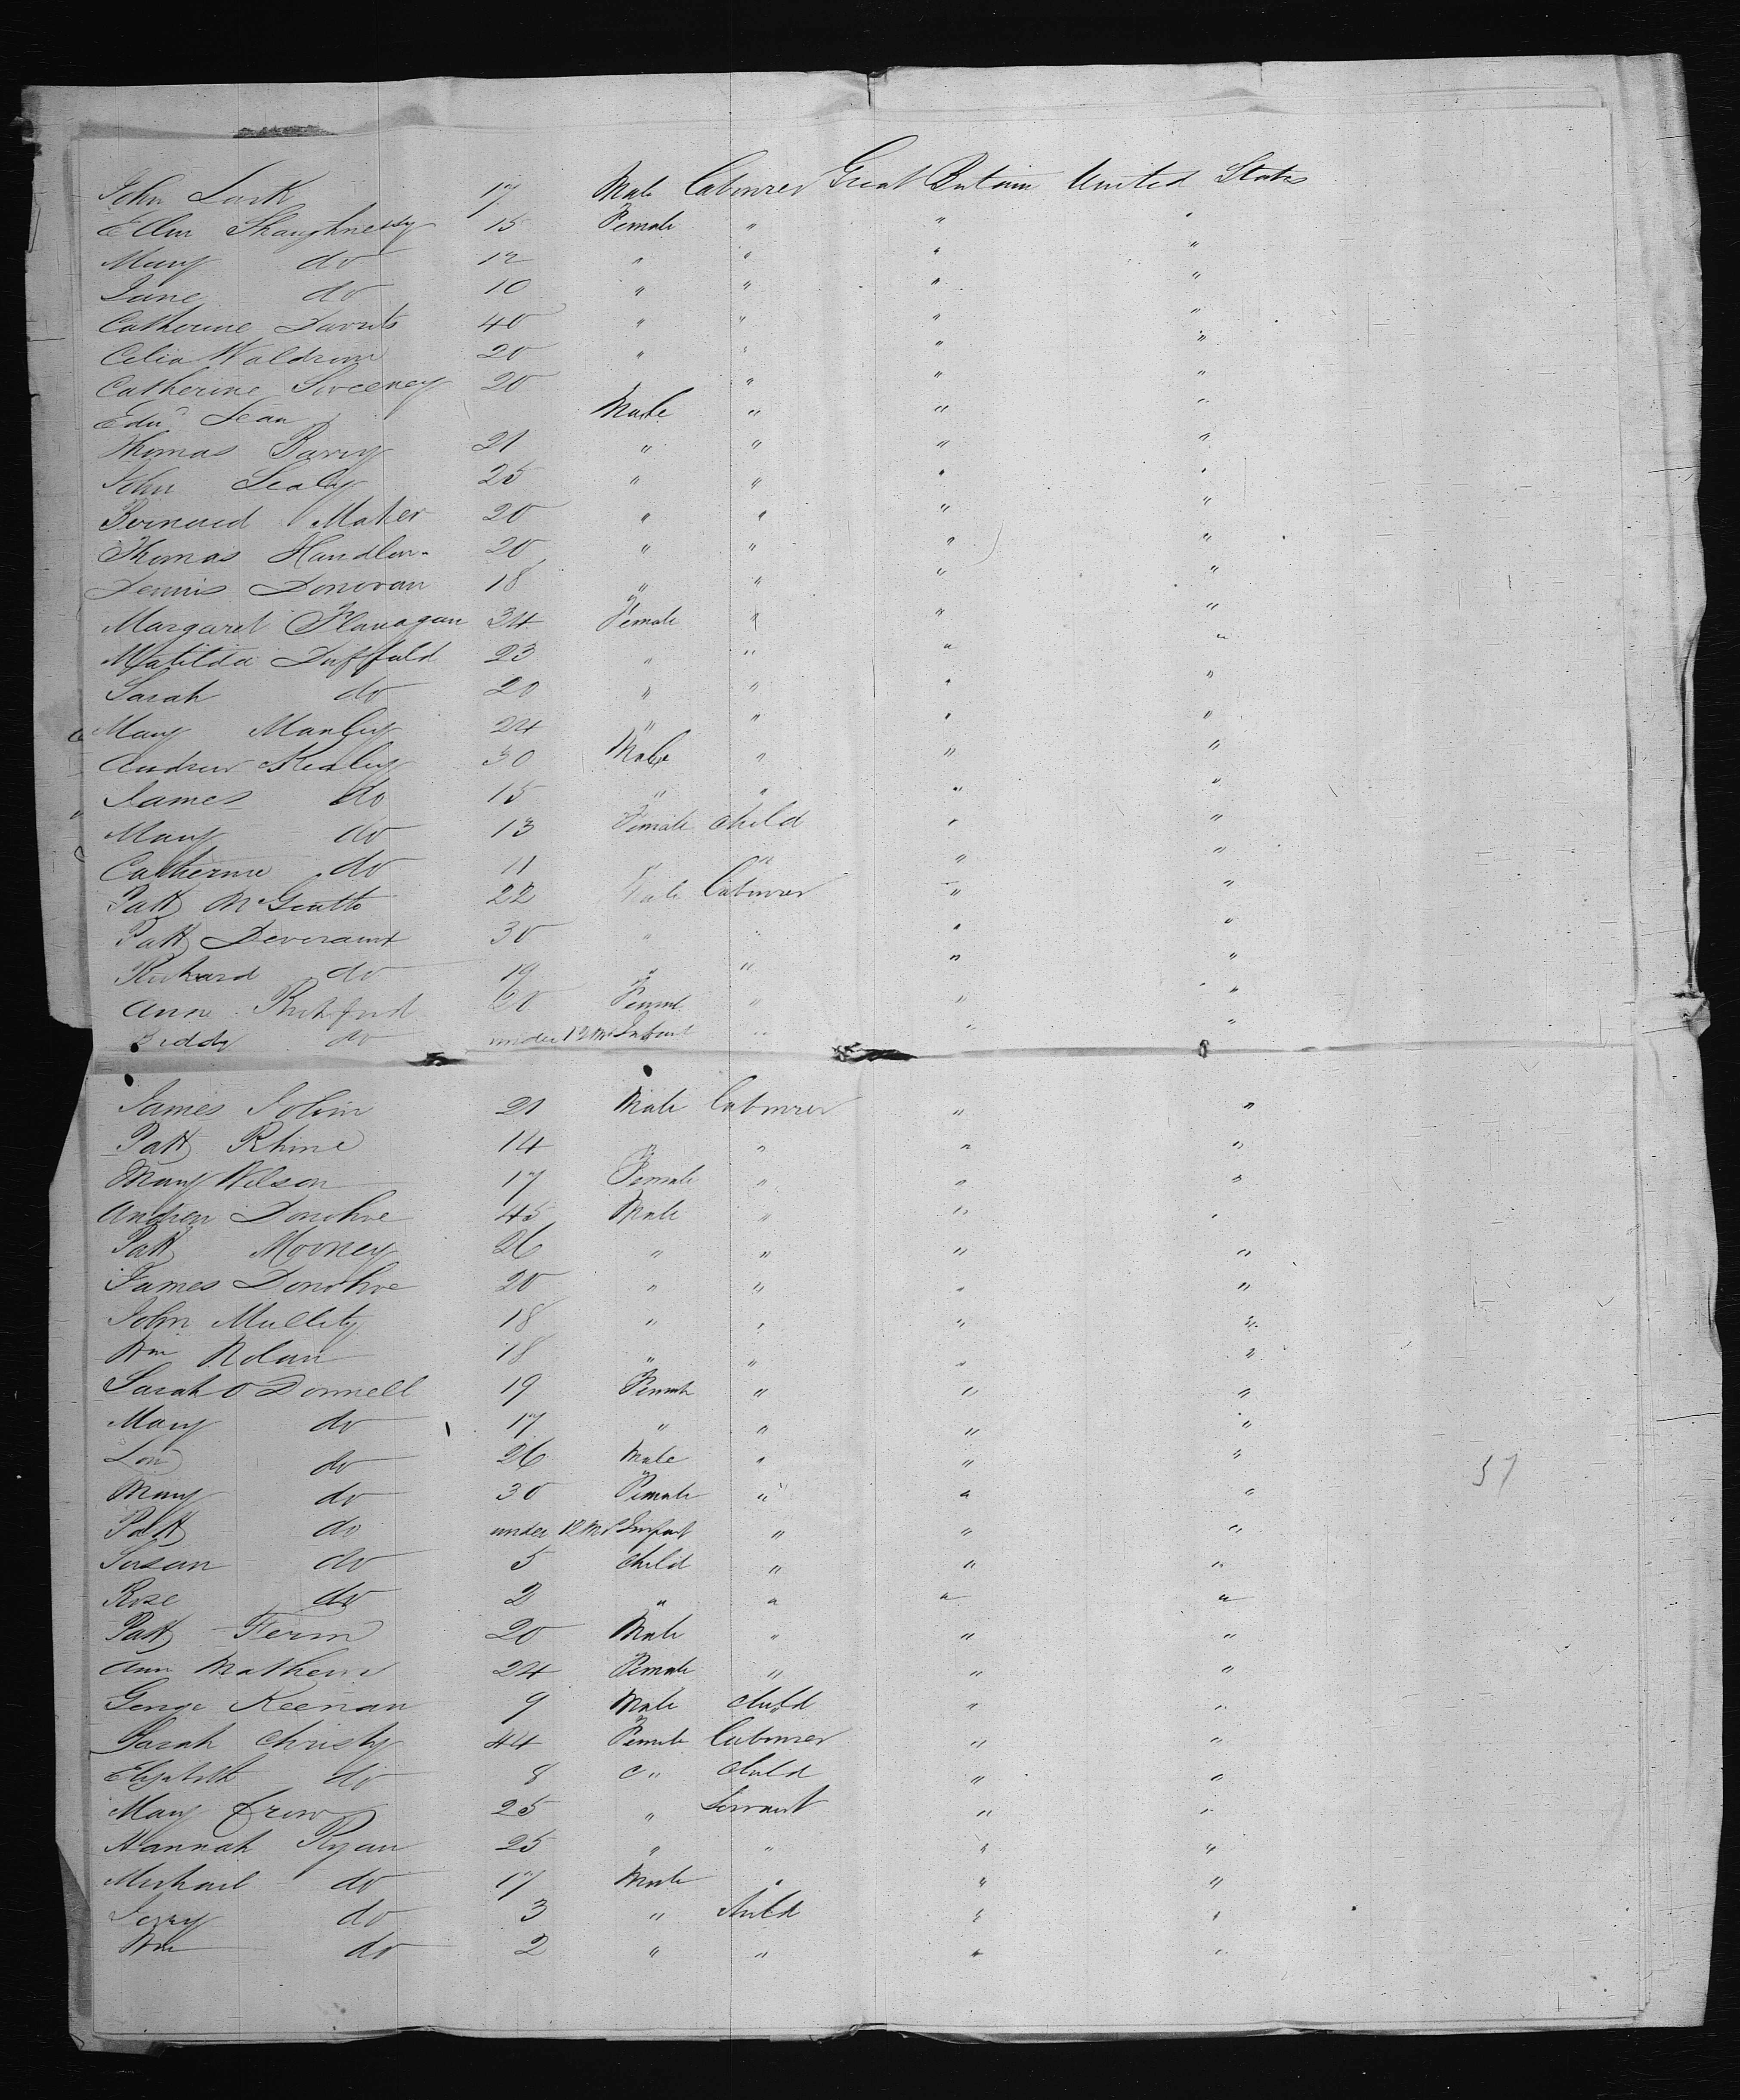 John Lark 17 Male Labourer Great Britain United States
Ellen Shaughnessy 15 Female " " "
Mary do 12 " " " "
Jane do 10 " " " "
Catherine 40 " " " "
Celia Waldron 20 " " " "
Catherine Sweeney 20 " " "
Edwd Lean Male " " "
Thomas Barry 21 " " " "
John Sealy 25 " " " "
Bernard Maher 20 " " " "
Thomas Handlen 20 " " " "
Dennis Donovan 18 " " " "
Margaret Flanagan 34 Female " " "
Matilda Duffuld 23 " " " "
Sarah do 20 " " " "
Mary Manley 24 " " " "
Andrew Kealey 30 Male " " "
James do 15 " " " "
Mary do 13 Female Child " "
Catherine do 11 " " " "
Patt 22 Male Labourer " "
Patt Deveraux 30 " " " "
Richard do 19 " " " "
Anne 60 Female " " "
Biddy do under 12 Ms Infant " " "
James Tobin 21 Male Labourer " "
Patt Rhine 14 " " " "
Mary Wilson 17 Female " " "
Andrew Donohoe 45 Male " " "
Patt Mooney 26 " " " "
James Donohoe 20 " " " "
John Mullity 18 " " " "
Wm Nolan 18 " " " "
Sarah O Donnell 19 Female " " "
Mary do 17 " " " "
do 26 Male " " "
Mary do 30 Female " " "
Patt do under 12 Ms Infant " " "
Susan do 5 Child " " "
Rose do 2 " " " "
Patt Ferin 20 Male " " "
Ann Mathews 24 Female " " "
George Keenan 9 Male Child " "
Sarah Christy 44 Female Labourer " "
Elizabeth do 8 " Child " "
Mary Crow 25 " Servant " "
Hannah Ryan 25 " " " "
Michael do 17 Male " " "
Jerry do 3 " Child " "
Wm do 2 " " " "
57